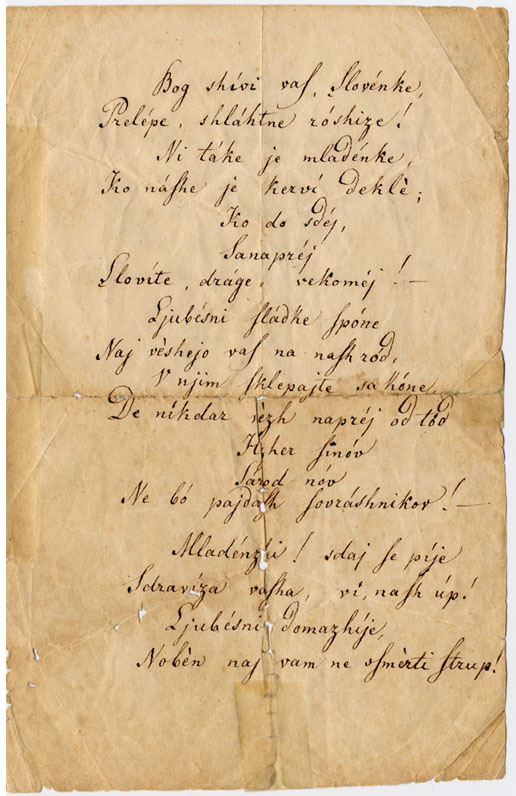 Bog shívi vaſ, Slovénke,
Prelépe, shláhtne róshize!
Ni táke je mladénke,
Ko náſhe je kerví deklè;
Ko do sdéj,
Sanapréj
Slovíte, dráge, vekoméj! –
Ljubésni ſládke ſpóne
Naj véshejo vaſ na naſh ród,
V njim ſklepajte sakóne,
De níkdar vèzh napréj od tód
Hzher ſinóv
Sárod nóv
Ne bó pajdáſh ſovráshnikov! –
Mladénzhi! sdaj ſe píje
Sdravíza vaſha, vi, naſh úp!
Ljubésni domazhíje,
Nobèn naj vam ne vſmèrti ſtrup!